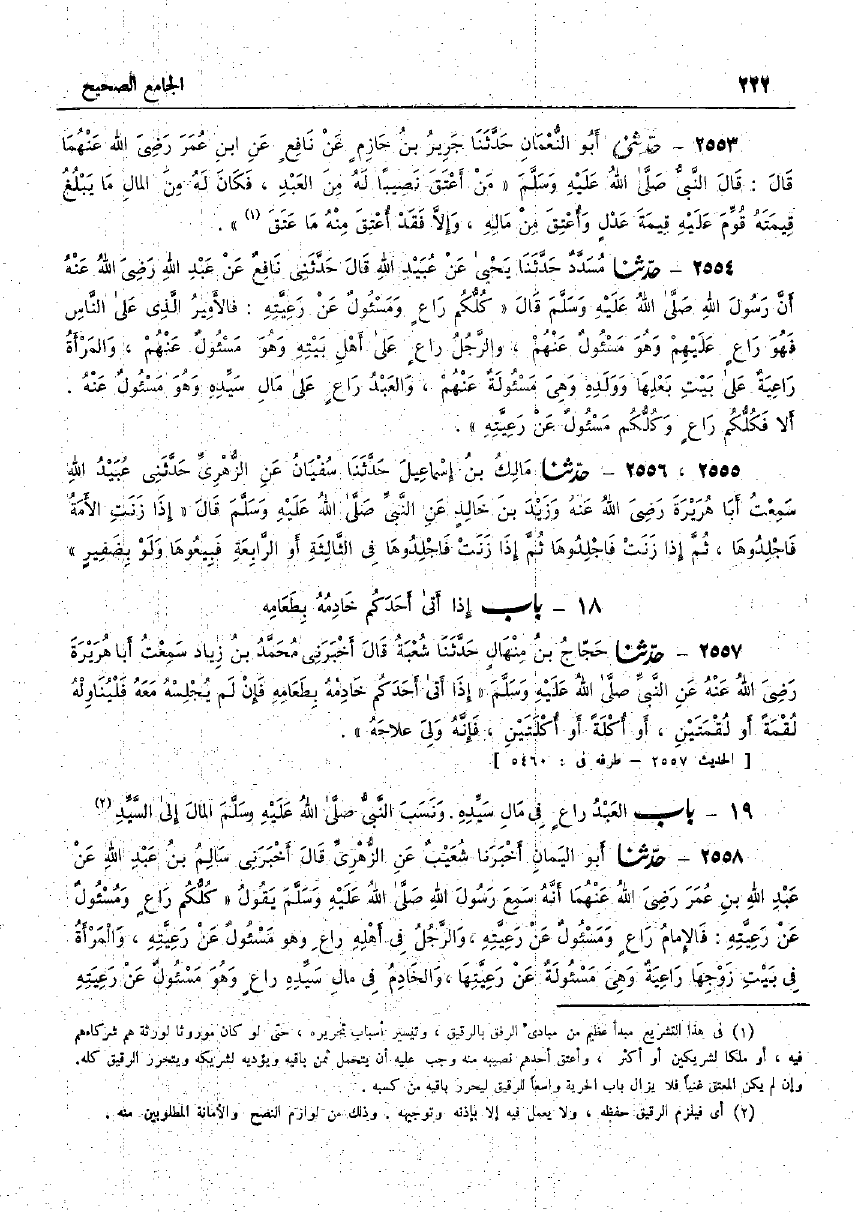 ٢٢٢ الجامع الصحيح
٢٥٥٣ - حَدَّثَنِي أَبُو النُّعْمَانِ حَدَّثَنَا جَرِيرُ بنُ حَازِمٍ عَنْ نَافِعٍ عَنِ ابنِ عُمَرَ رَضِيَ اللهُ عَنْهُمَا
قَالَ : قَالَ النَّبِيُّ صَلَّى اللهُ عَلَيْهِ وَسَلَّمَ « مَنْ أَعْتَقَ نَصِيبًا لَهُ مِنَ العَبْدِ ، فَكَانَ لَهُ مِنَ المَالِ مَا يَبْلُغُ
قِيمَتَهُ قُوِّمَ عَلَيْهِ قِيمَةَ عَدْلٍ وَأُعْتِقَ مِنْ مَالِهِ ، وَإِلاَّ فَقَدْ أُعْتِقَ مِنْهُ مَا عَتَقَ (١) » .
٢٥٥٤ - حدّثنا مُسَدَّدٌ حَدَّثَنَا يَحْيَىٰ عَنْ عُبَيْدِ اللهِ قَالَ حَدَّثَنِى نَافِعٌ عَنْ عَبْدِ اللهِ رَضِيَ اللهُ عَنْهُ
أَنَّ رَسُولَ اللهِ صَلَّى اللهُ عَلَيْهِ وَسَلَّمَ قَالَ « كُلُّكُم رَاعٍ وَمَسْئُولٌ عَنْ رَعِيَّتِهِ : فَالأَمِيرُ الَّذِى عَلىٰ النَّاسِ
فَهُوَ رَاعٍ عَلَيْهِمْ وَهُوَ مَسْئُولٌ عَنْهُمْ ، والرَّجُلُ راعٍ عَلىٰ أَهْلِ بَيْتِهِ وَهُوَ مَسْئُولٌ عَنْهُمْ ، وَالمَرْأَةُ
رَاعِيَةٌ عَلىٰ بَيْتِ بَعْلِهَا وَوَلَدِهِ وَهِىَ مَسْئُولَةٌ عَنْهُمْ ، وَالعَبْدُ رَاعٍ عَلىٰ مَالِ سَيِّدِهِ وَهُوَ مَسْئُولٌ عَنْهُ .
أَلَا فَكُلُّكُم رَاعٍ وَكُلُّكُم مَسْئُولٌ عَنْ رَعِيَّتِهِ » .
٢٥٥٥ ، ٢٥٥٦ - حدّثنا مَالِكُ بنُ إِسْمَاعِيلَ حَدَّثَنَا سُفْيَانُ عَنِ الزُّهْرِىِّ حَدَّثَنِى عُبَيْدُ اللهِ
سَمِعْتُ أَبَا هُرَيْرَةَ رَضِىَ اللهُ عَنْهُ وَزَيْدَ بنَ خَالِدٍ عَنِ النَّبِىِّ صَلَّىٰ اللهُ عَلَيْهِ وَسَلَّمَ قَالَ « إِذَا زَنَتِ الأَمَةُ
فَاجْلِدُوهَا ، ثُمَّ إِذَا زَنَتْ فَاجْلِدُوهَا ثُمَّ إِذَا زَنَتْ فَاجْلِدُوهَا فِى الثَّالِثَةِ أَوِ الرَّابِعَةِ فَبِيعُوهَا وَلَوْ بِضَفِيرٍ »
١٨ - باب إِذَا أَتىٰ أَحَدَكُم خَادِمُهُ بِطَعَامِهِ
٢٥٥٧ - حدّثنا حَجَّاجُ بنُ مِنْهَالٍ حَدَّثَنَا شُعْبَةُ قَالَ أَخْبَرَنِى مُحَمَّدُ بنُ زِيادٍ سَمِعْتُ أَبا هُرَيْرَةَ
رَضِىَ اللهُ عَنْهُ عَنِ النَّبِىِّ صَلَّىٰ اللهُ عَلَيْهِ وَسَلَّمَ « إِذَا أَتىٰ أَحَدَكُم خَادِمُهُ بِطَعَامِهِ فَإِنْ لَم يُجْلِسْهُ مَعَهُ فَلْيُنَاوِلْهُ
لُقْمَةً أَو لُقْمَتَيْنِ ، أَو أُكْلَةً أَو أُكْلَتَيْنِ ، فَإِنَّهُ وَلِىَ عِلَاجَهُ » .
[ الحديث ٢٥٥٧ - طرفه فى : ٥٤٦٠ ]
١٩ - باب العَبْدُ راعٍ فِى مَالِ سَيِّدِهِ . وَنَسَبَ النَّبِىُّ صَلَّىٰ اللهُ عَلَيْهِ وسَلَّمَ المَالَ إِلىٰ السَّيِّدِ (٢)
٢٥٥٨ - حدّثنا أَبو اليَمانِ أَخْبَرَنا شُعَيْبٌ عَنِ الزُّهْرِىِّ قَالَ أَخْبَرَنِى سَالِمُ بنُ عَبْدِ اللهِ عَنْ
عَبْدِ اللهِ بنِ عُمَرَ رَضِىَ اللهُ عَنْهُمَا أَنَّهُ سَمِعَ رَسُولَ اللهِ صَلَّىٰ اللهُ عَلَيْهِ وَسَلَّمَ يَقُولُ « كُلُّكُم رَاعٍ وَمَسْئُولٌ
عَنْ رَعِيَّتِهِ : فَالإِمَامُ رَاعٍ وَمَسْئُولٌ عَنْ رَعِيَّتِهِ ، وَالرَّجُلُ فِى أَهْلِهِ راعٍ وهو مَسْئُولٌ عَنْ رَعِيَّتِهِ ، وَالْمَرْأَةُ
فِى بَيْتِ زَوْجِهَا رَاعِيَةٌ وَهِىَ مَسْئُولَةٌ عَنْ رَعِيَّتِهَا ، وَالخَادِمُ فِى مالِ سَيِّدِهِ راعٍ وَهُوَ مَسْئُولٌ عَنْ رَعِيَّتِهِ
(١) فى هذا التشريع مبدأ عظيم من مبادئ الرفق بالرقيق ، وتيسير أسباب تحريره ، حتى لو كان موروثا لورثة هم شركاءهم
فيه ، أو ملكا لشريكين أو أكثر ، وأعتق أحدهم نصيبه منه وجب عليه أن يتحمل ثمن باقيه ويؤديه لشريكه ويتحرر الرقيق كله.
وإن لم يكن المعتق غنياً فلا يزال باب الحرية واسعاً للرقيق ليحرر باقيه من كسبه .
(٢) أى فيلزم الرقيق حفظه ، ولا يعمل فيه إلا بإذنه وتوجيهه . وذلك من لوازم النصح والأمانة المطلوبين منه .